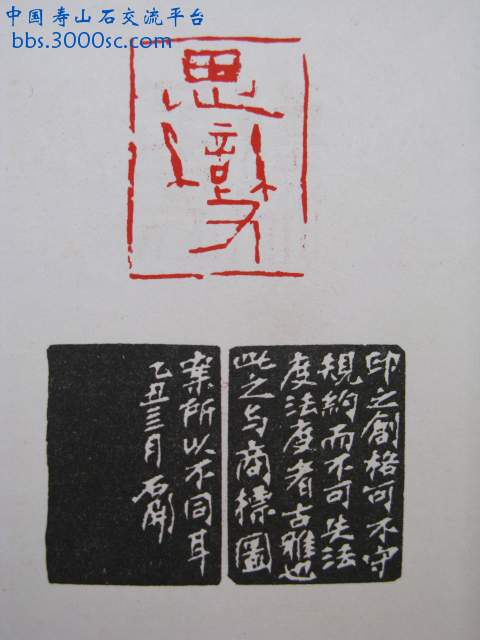 中国寿山石交流平台
bbs.3000sc.com
思變
印之創格可不守
規約而不可失法
度法度者古雅也
此之与商標圖
案所以不同耳
乙丑三月石開